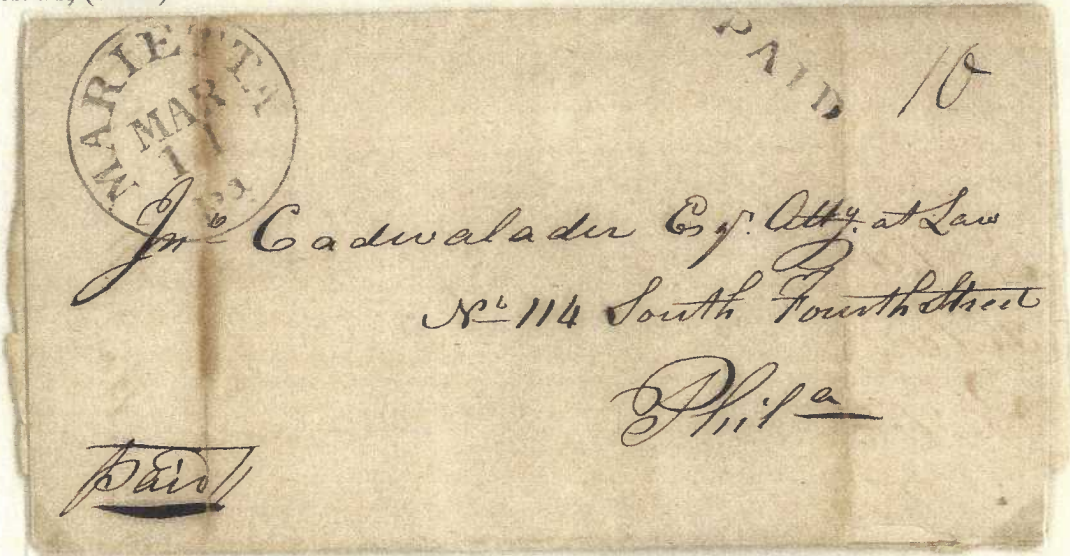 MARIETTA
MAR
11
Pa
PAID
10
Jno Cadwalader Esqr. Atty. at Law
No 114 South Fourth Street
Phila
Paid